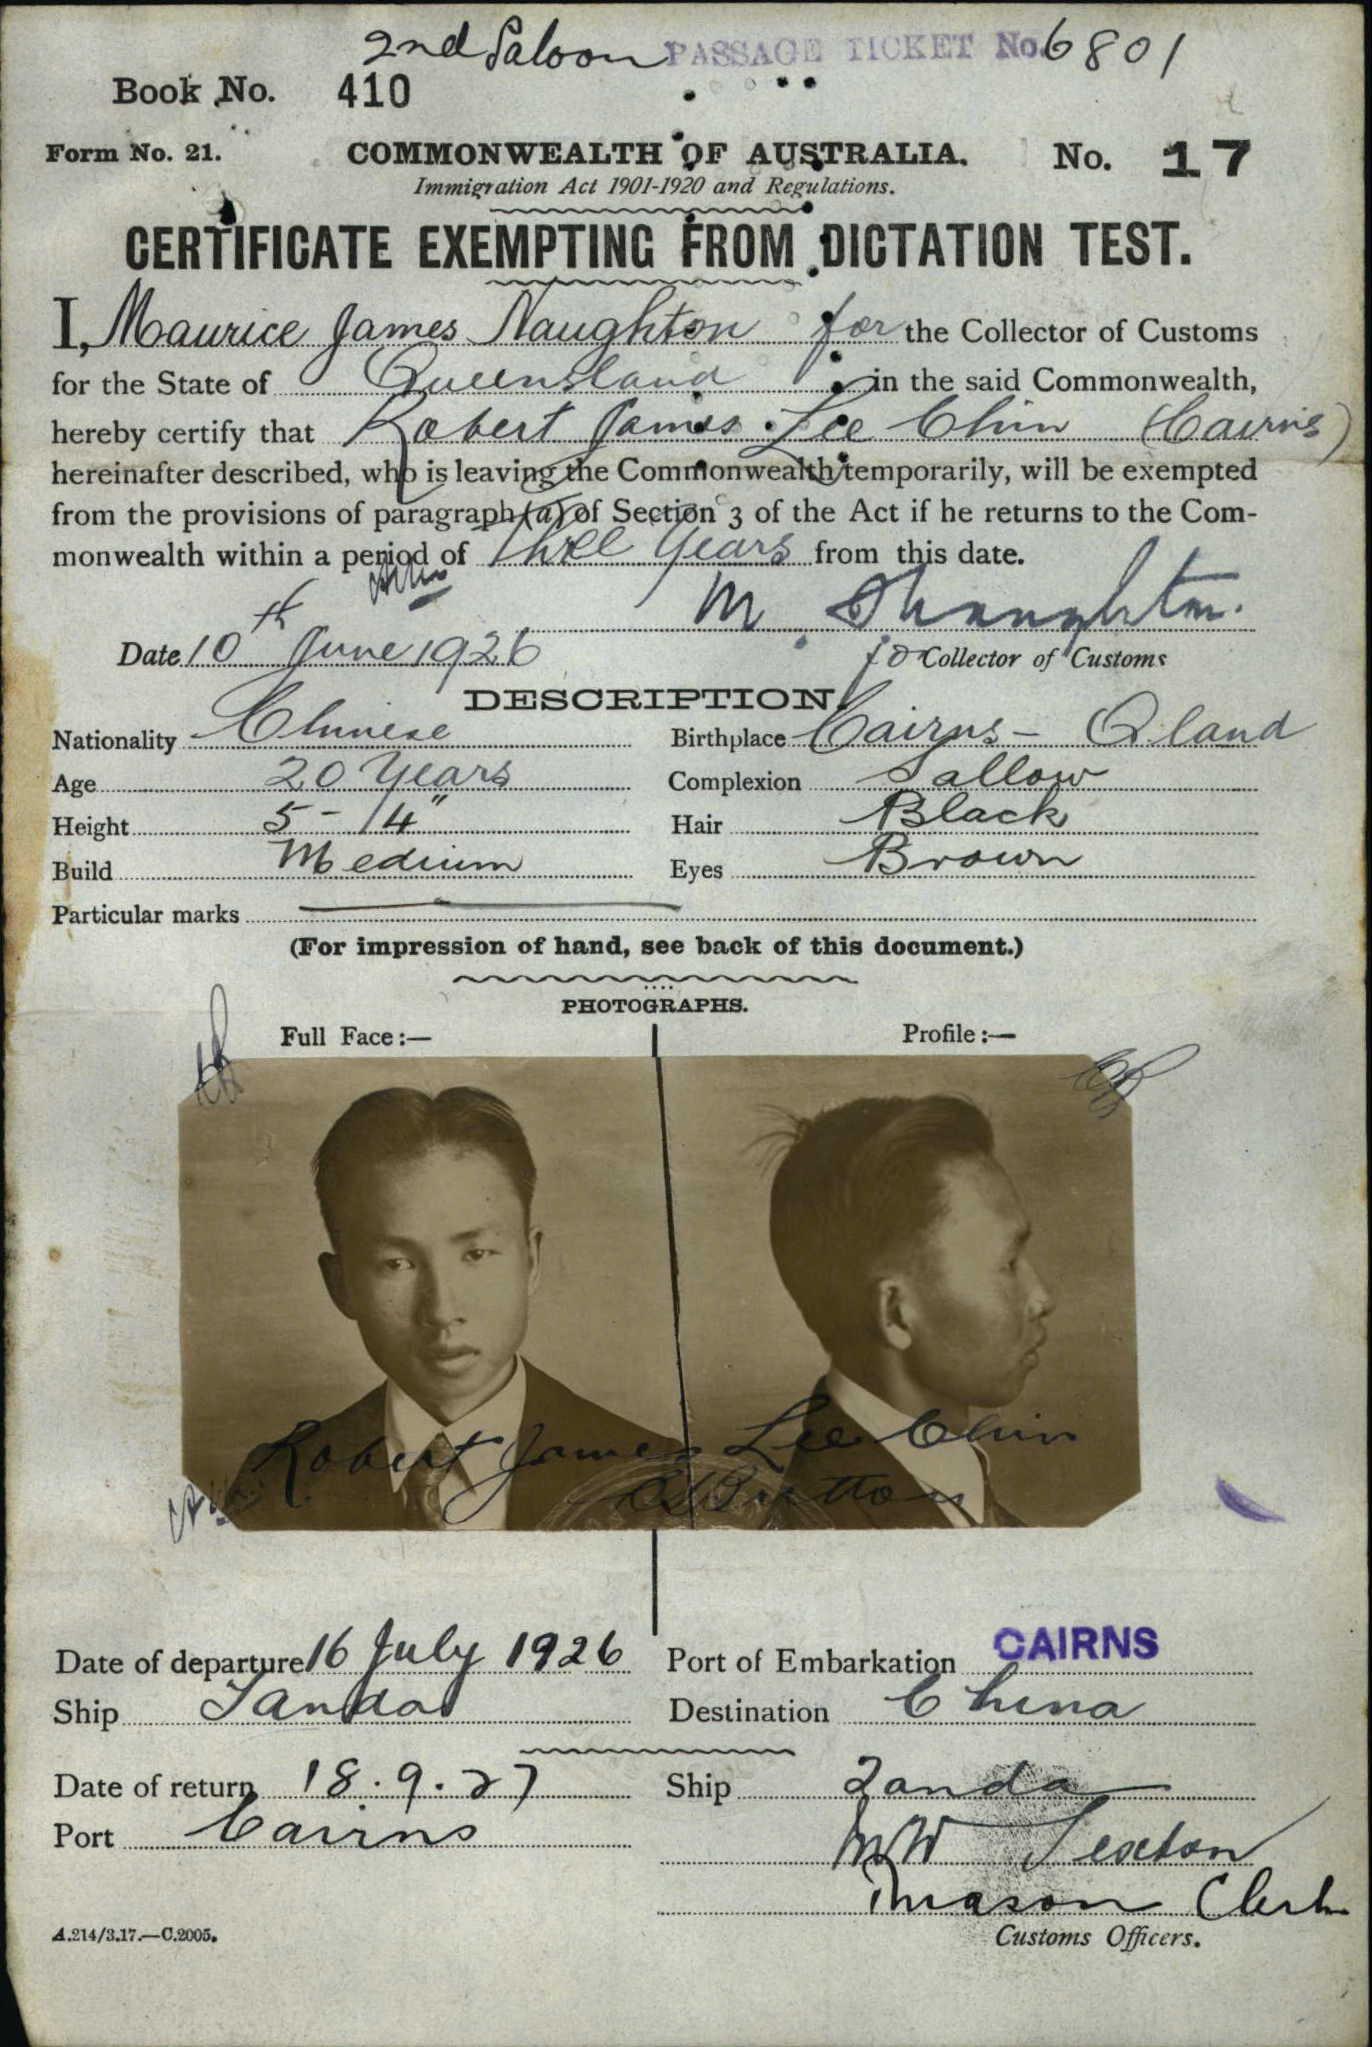 2nd Saloon PASSAGE TICKET No. 6801
Book No. 410
Form No. 21. COMMONWEALTH OF AUSTRALIA. No. 17
Immigration Act 1901-1920 and Regulations.
CERTIFICATE EXEMPTING FROM DICTATION TEST.
I, Maurice James Naughton for the Collector of Customs
for the State of Queensland in the said Commonwealth,
hereby certify that Robert James Lee Chin (Cairns)
hereinafter described, who is leaving the Commonwealth temporarily, will be exempted
from the provisions of paragraph (a) of Section 3 of the Act if he returns to the Com-
monwealth within a period of three years from this date.
M. J. Naughton.
Date 10th June 1926 fo Collector of Customs
DESCRIPTION.
Nationality Chinese Birthplace Cairns - Qland
Age 20 Years Complexion Sallow
Height 5 - 4" Hair Black
Build Medium Eyes Brown
Particular marks
(For impression of hand, see back of this document.)
PHOTOGRAPHS.
Full Face :— Profile :—
Robert James Lee Chin
Date of departure 16 July 1926 Port of Embarkation CAIRNS
Ship Tanda Destination China
Date of return 18.9.27 Ship Tanda
Port Cairns
Sexton
Mason Clerk
A.214/3.17.—C.2005. Customs Officers.